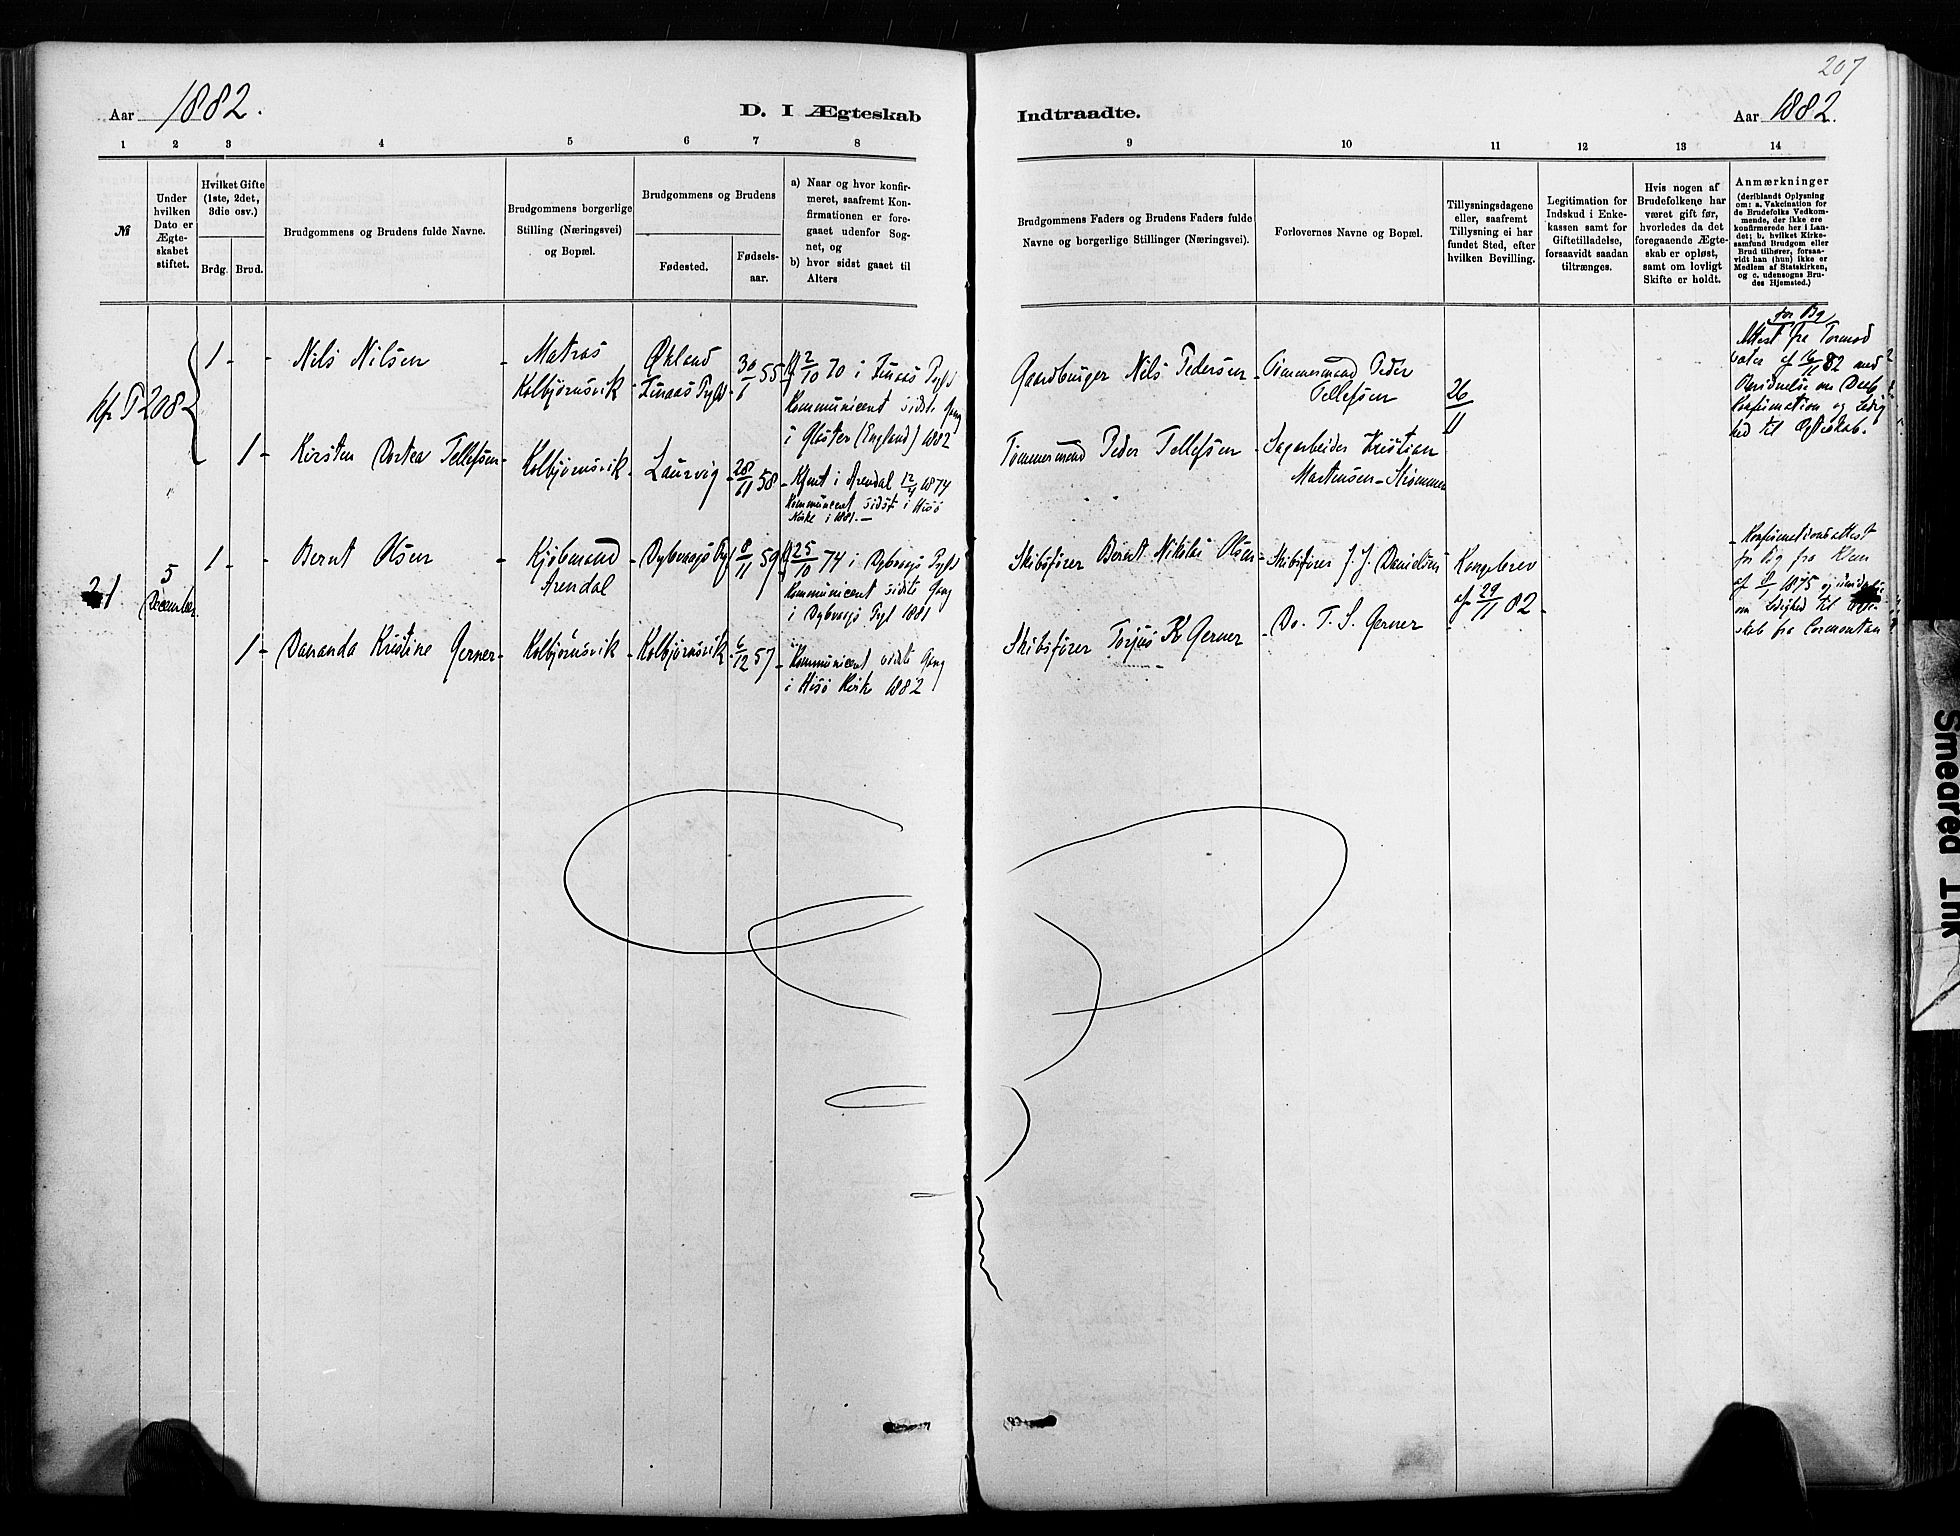 207
Aar 1882.
D. I Ægteskab
Indtraadte.
Aar 1882.
1 2 3 4 5 6 7 8 9 10 11 12 13 14
№
Under hvilken Dato er Ægteskabet stiftet.
Hvilket Gifte (1ste, 2det, 3die osv.)
Brdg. Brud.
Brudgommens og Brudens fulde Navne.
Brudgommens borgerlige Stilling (Næringsvei) og Bopæl.
Brudgommens og Brudens
Fødested.
Fødselsaar.
a) Naar og hvor konfirmeret, saafremt Konfirmationen er foregaaet udenfor Sognet, og
b) hvor sidst gaaet til Alters
Brudgommens Faders og Brudens Faders fulde Navne og borgerlige Stillinger (Næringsvei).
Forlovernes Navne og Bopæl.
Tillysningsdagene eller, saafremt Tillysning ei har fundet Sted, efter hvilken Bevilling.
Legitimation for Indskud i Enkekassen samt for Giftetilladelse, forsaavidt saadan tiltrænges.
Hvis nogen af Brudefolkene har været gift før, hvorledes da det foregaaende Ægteskab er opløst, samt om lovligt Skifte er holdt.
Anmærkninger (deriblandt Oplysning om: a. Vakcination for de Brudefolks Vedkommende, der ikke ere konfirmerede her i Landet; b. hvilket Kirkesamfund Brudgom eller Brud tilhører, forsaavidt han (hun) ikke er Medlem af Statskirken, og c. udensogns Brudes Hjemsted.)
208
1 - - Nils Nilsen - Matros Kolbjørnsvik - Økland
30/1 55
2/10 70 i
Kommunicent sidste Gang
i Gloster (England) 1882
Gaardbruger Nils Pedersen - Tømmermand Peder Tellefsen
26/11
for Bg
Attest fra
af 16/11 82 med
Konfirmation og Ledig
hed til Ægteskab.
1 - Kirsten Dortea Tellefsen - Kolbjørnsvik - Laurvig - 28/11 58 - Kfmt i Arendal 12/4 1874
Kommunicent sidst i Hisö
Kirke i 1881. —
Tømmermand Peder Tellefsen - Sagarbeider Kristian Martensen - Strømmen
21
5 December
1 - - Bernt Olsen - Kjøbmand Arendal - Dybvaag
8/11 59
25/10 74 i Dybvaag
Kommunicent sidste Gang
i Dybvaag Pgl 1881
Skibsfører Bernt Nikolai Olsen - Skibsfører J. J. Danielsen
Kongebrev
af 29/11 82 -
- Konfirmationsattest
for Bg fra
1875
om Ledighed til Ægte
skab fra
1 - Dananda Kristine Gerner - Kolbjørnsvik - Kolbjørnsvik - 6/12 57 -
Kommunicent sidste Gang
i Hisö Kirke 1882
Skibsfører Torjus K Gerner - Do. T. S. Gerner
Smeared Ink